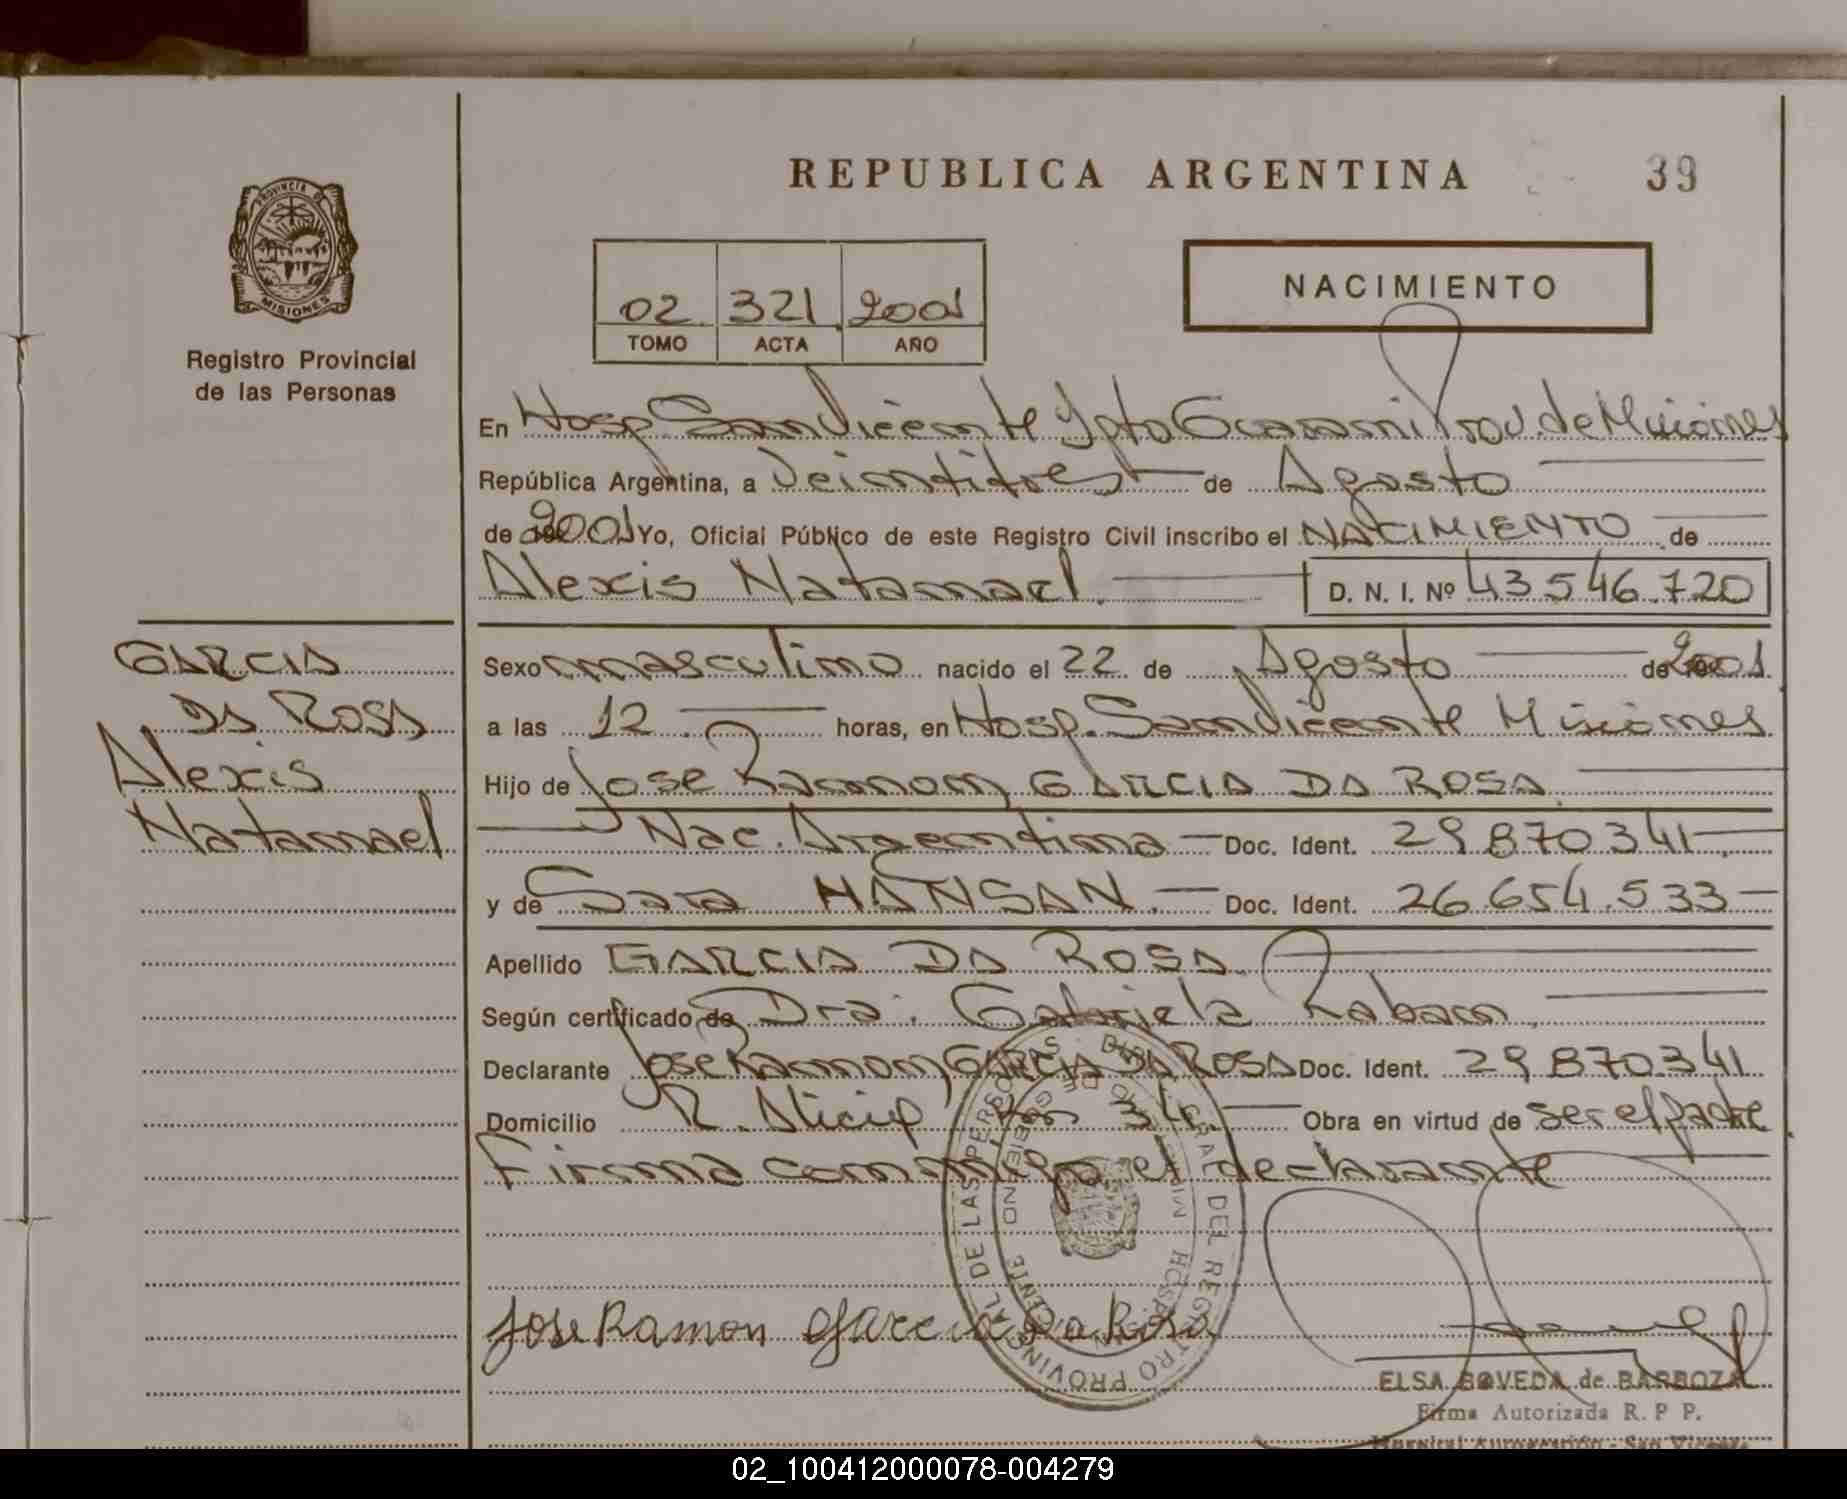 REPUBLICA ARGENTINA
39
PROVINCIA DE
MISIONES
Registro Provincial
de las Personas
NACIMIENTO
02 321 2001
TOMO ACTA AÑO
En Hosp San Vicente Dpto Guarani Prov. de Misiones
República Argentina, a veintitres de Agosto
de 2001 Yo, Oficial Público de este Registro Civil inscribo el NACIMIENTO de
Alexis Natanael. D. N. I. Nº 43.546.720
GARCIA
DA ROSA
Alexis
Natanael
Sexo masculino nacido el 22 de Agosto de 2001.
a las 12. horas, en Hosp. San Vicente Misiones
Hijo de Jose Ramon GARCIA DA ROSA
Nac. Argentina Doc. Ident. 29.870.341
y de Sara HANSAN. Doc. Ident. 26.654.533
Apellido GARCIA DA ROSA.
Según certificado de Dra. Gabriela Raban.
Declarante Jose Ramon GARCIA DA ROSA Doc. Ident. 29.870.341
Domicilio R. Alicia Km 34. Obra en virtud de ser el padre
Firma conmigo el declarante
Jose Ramon Garcia Da Rosa
ELSA BOVEDA de BARBOZA
Firma Autorizada R. P P.
Hospital Autogestión - San Vicente
02_100412000078-004279